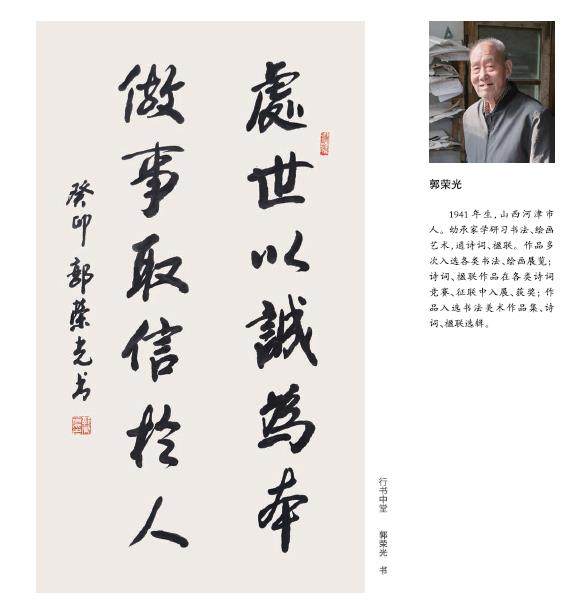 處世以誠為本
做事取信於人
癸卯 郭榮光书
行书中堂 郭荣光 书
郭荣光
1941 年生，山西河津市
人。幼承家学研习书法、绘画
艺术，通诗词、楹联。作品多
次入选各类书法、绘画展览；
诗词、楹联作品在各类诗词
竞赛、征联中入展、获奖；作
品入选书法美术作品集、诗
词、楹联选辑。